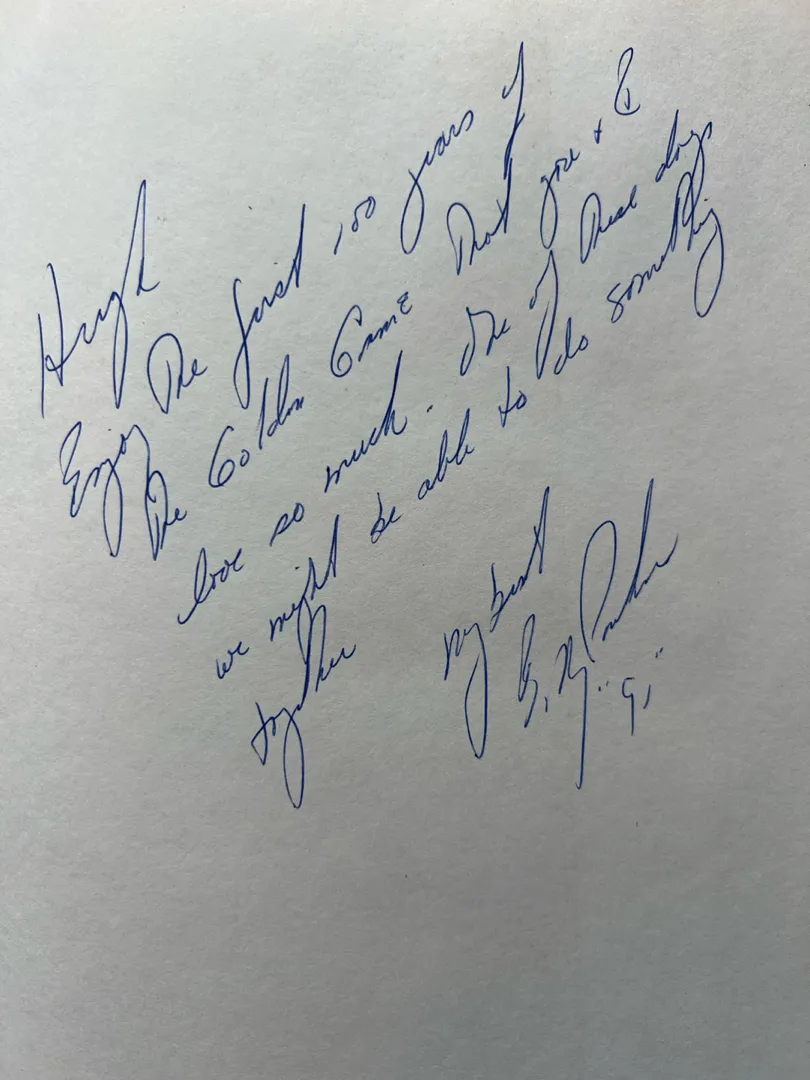 Hugh
Enjoy The first 100 years of
The Golden Game That you & I
love so much. One of These days
we might be able to do something
together
My best
"G."